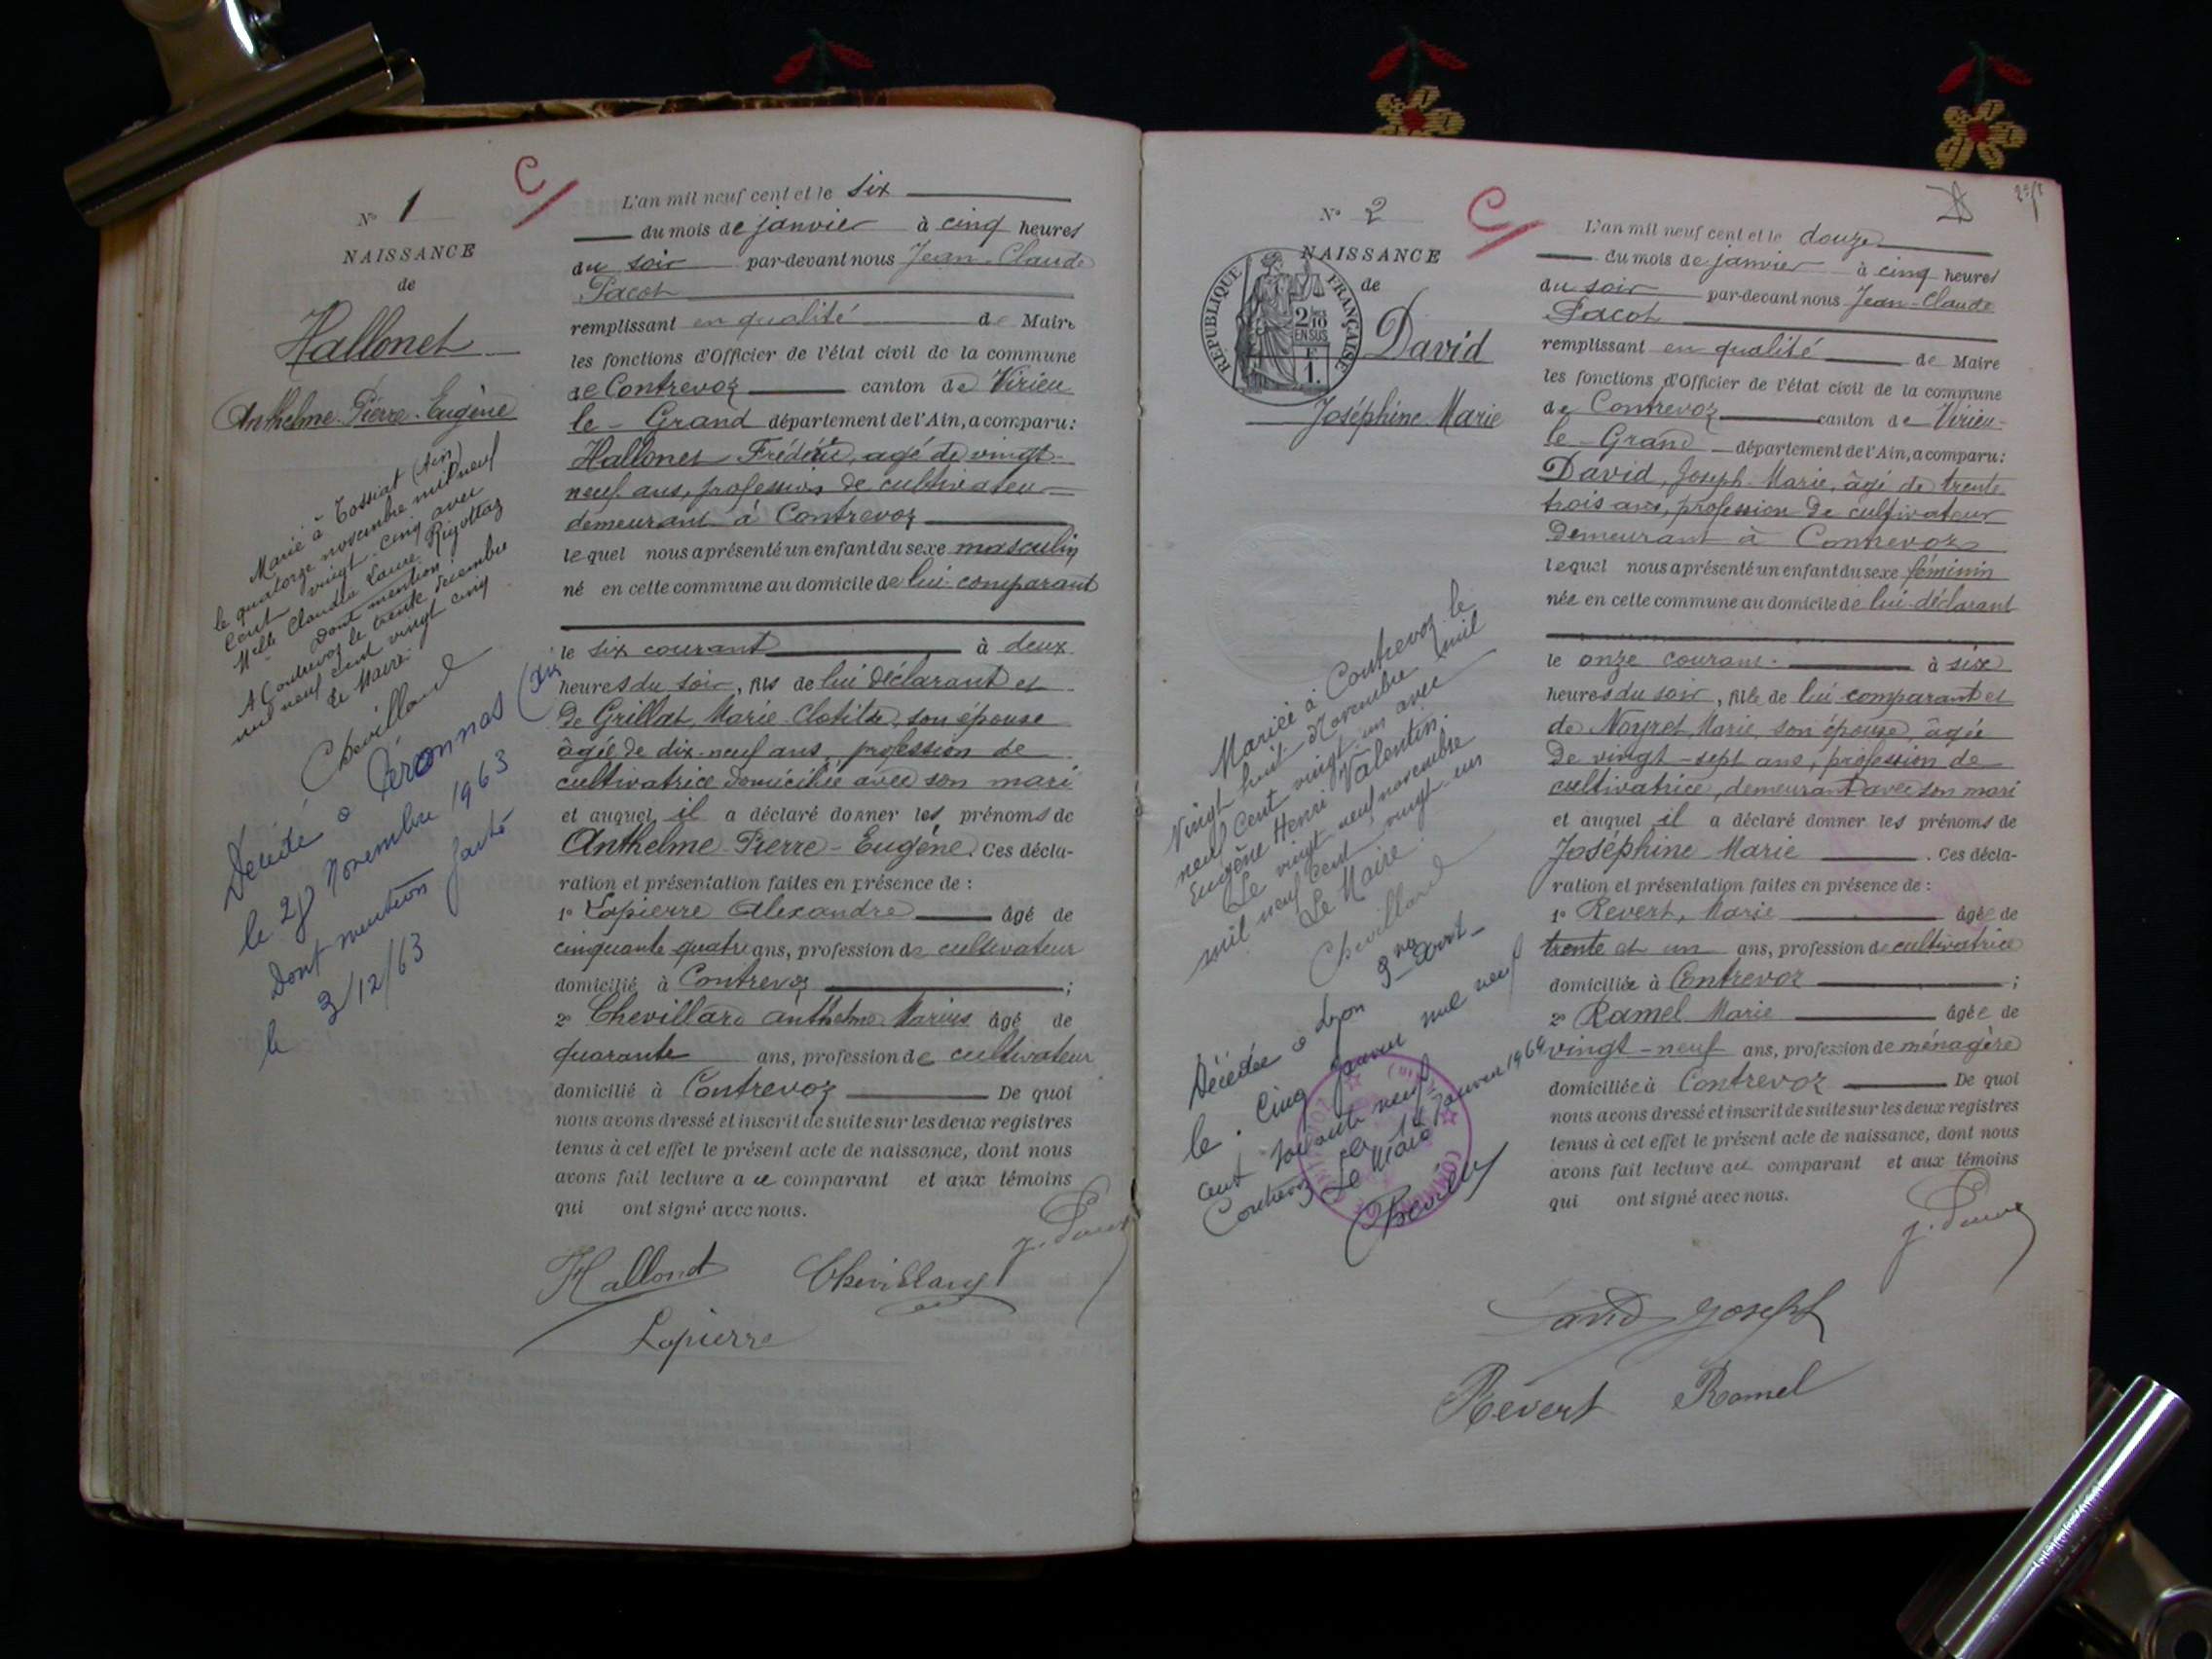 N° 1
NAISSANCE
de
Hallonet
Anthelme-Pierre-Eugène
Marié à Tossiat (Ain)
le quatorze novembre mil neuf
cent vingt-cinq avec
Melle Claudia Laure Rigottaz
dont mention
A Contrevoz le trente décembre
mil neuf cent vingt cinq
Le Maire:
Chevillard
Décédé à Péronnas (Ain
le 28 Novembre 1963
Dont mention faite
le 3/12/63
C
L'an mil neuf cent et le six
du mois de janvier à cinq heures
du soir par-devant nous Jean-Claude
Pacot
remplissant en qualité de Maire
les fonctions d'Officier de l'état civil de la commune
de Contrevoz canton de Virieu
le-Grand département de l'Ain, a comparu:
Hallonet Frédéric, agé de vingt-
neuf ans, profession de cultivateur
demeurant à Contrevoz
lequel nous a présenté un enfant du sexe masculin
né en cette commune au domicile de lui comparant
le six courant à deux
heures du soir, fils de lui déclarant et
de Grillat Marie Clotilde, son épouse
âgée de dix-neuf ans, profession de
cultivatrice domiciliée avec son mari
et auquel il a déclaré donner les prénoms de
Anthelme-Pierre-Eugène. Ces décla-
ration et présentation faites en présence de :
1° Lapierre Alexandre âgé de
cinquante quatre ans, profession de cultivateur
domicilié à Contrevoz ;
2° Chevillard Anthelme Marius âgé de
quarante ans, profession de cultivateur
domicilié à Contrevoz De quoi
nous avons dressé et inscrit de suite sur les deux registres
tenus à cet effet le présent acte de naissance, dont nous
avons fait lecture au comparant et aux témoins
qui ont signé avec nous.
J. Pacot
Hallonet Chevillard
Lapierre
N° 2
NAISSANCE
de
David
Joséphine-Marie
REPUBLIQUE FRANÇAISE
2/10
EN SUS
1.
Mariée à Contrevoz le
vingt huit Novembre mil
neuf cent vingt-un avec
Eugène Henri Valentin.
Le vingt neuf novembre
mil neuf cent vingt-un
Le Maire
Chevillard
Décédée à Lyon 3me Arrt-
le Cinq Janvier mil neuf
cent soixante neuf
Contrevoz le 14 Janvier 1969
Le Maire
C
L'an mil neuf cent et le douze
du mois de janvier à cinq heures
du soir par-devant nous Jean-Claude
Pacot
remplissant en qualité de Maire
les fonctions d'Officier de l'état civil de la commune
de Contrevoz canton de Virieu-
le-Grand département de l'Ain, a comparu:
David, Joseph-Marie, âgé de trente
trois ans, profession de cultivateur
demeurant à Contrevoz
lequel nous a présenté un enfant du sexe féminin
née en cette commune au domicile de lui-déclarant
le onze courant. à six
heures du soir, fille de lui comparant et
de Noyret Marie, son épouse âgée
de vingt-sept ans, profession de
cultivatrice, demeurant avec son mari
et auquel il a déclaré donner les prénoms de
Joséphine-Marie . Ces décla-
ration et présentation faites en présence de :
1° Revert, Marie âgée de
trente et un ans, profession de cultivatrice
domiciliée à Contrevoz ;
2° Ramel Marie âgée de
vingt-neuf ans, profession de ménagère
domiciliée à Contrevoz De quoi
nous avons dressé et inscrit de suite sur les deux registres
tenus à cet effet le présent acte de naissance, dont nous
avons fait lecture au comparant et aux témoins
qui ont signé avec nous.
J. Pacot
David Joseph
Révert Ramel